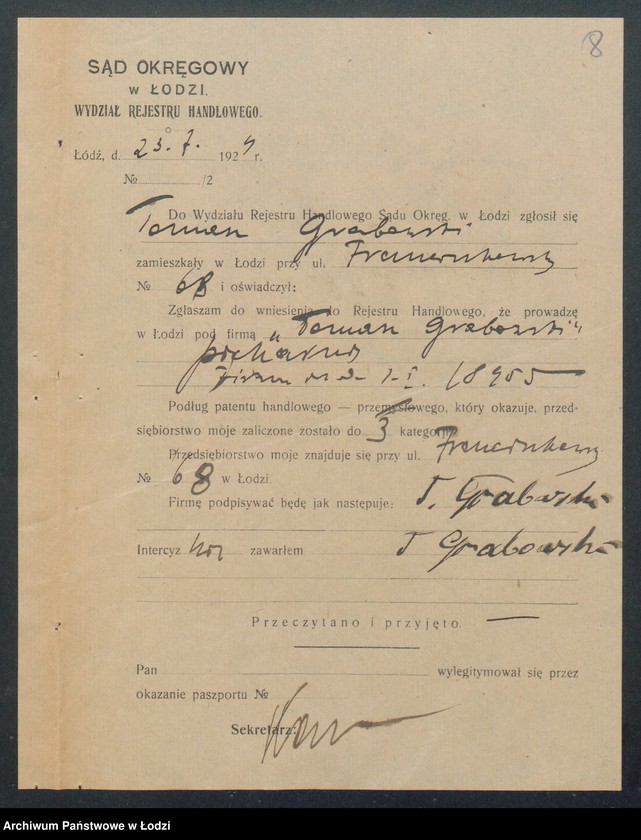 8
SĄD OKRĘGOWY
W ŁODZI.
WYDZIAŁ REJESTRU HANDLOWEGO.
Łódź, d. 23. 7. 1924 r.
№ /2
Do Wydziału Rejestru Handlowego Sądu Okręg. w Łodzi zgłosił się
Toman Grabowski
zamieszkały w Łodzi przy ul.
№ 68 i oświadczył:
Zgłaszam do wniesienia do Rejestru Handlowego, że prowadzę
w Łodzi pod firmą „Toman Grabowski"
piekarnię
Podług patentu handlowego — przemysłowego, który okazuje, przed-
siębiorstwo moje zaliczone zostało do 3 kategorji.
Przedsiębiorstwo moje znajduje się przy ul.
№ 68 w Łodzi.
Firmę podpisywać będę jak następuje: T. Grabowski
Intercyz nie zawarłem T Grabowski
Przeczytano i przyjęto.
Pan wylegitymował się przez
okazanie paszportu №
Sekretarz:
Archiwum Państwowe w Łodzi